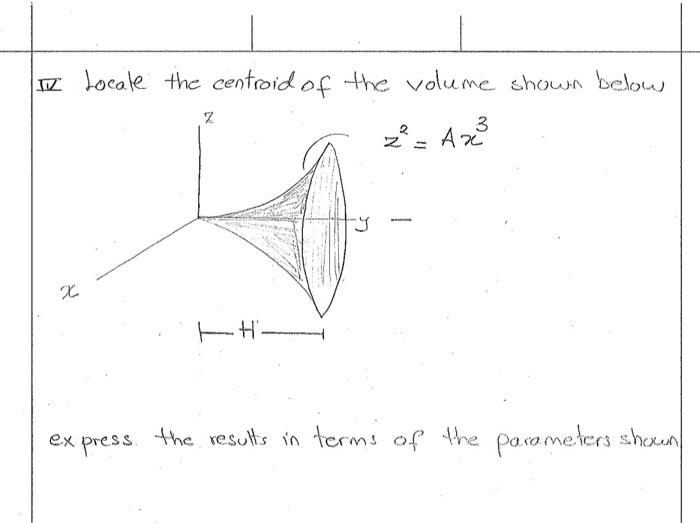 IV Locate the centroid of the volume shown below
z
z² = Ax³
y
x
H
express the results in terms of the parameters shown